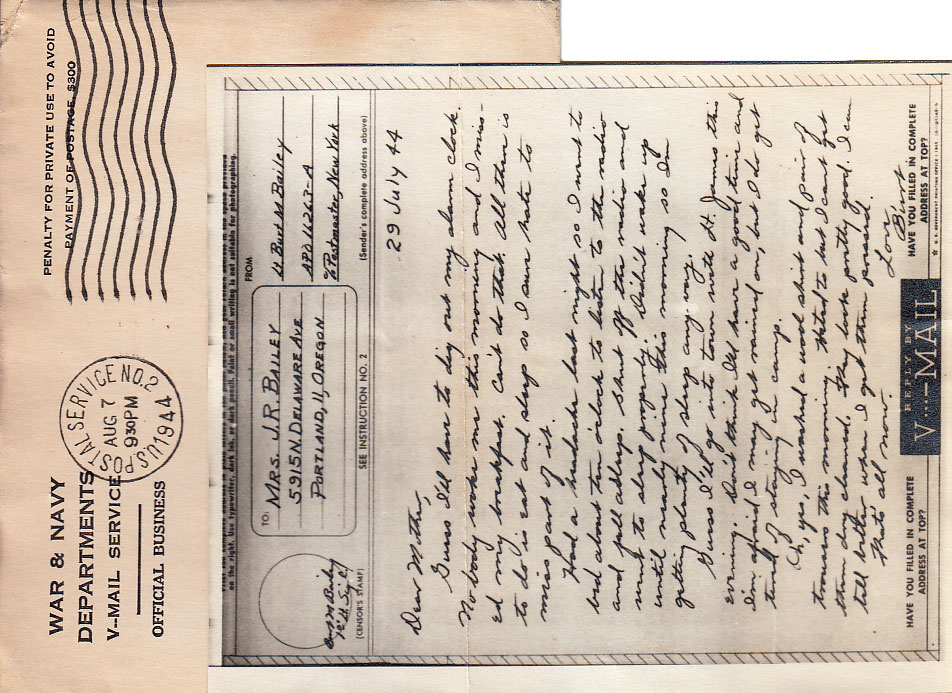 WAR & NAVY
DEPARTMENTS
V-MAIL SERVICE
OFFICIAL BUSINESS
U.S. POSTAL SERVICE NO. 2
AUG 7
930PM
1944
PENALTY FOR PRIVATE USE TO AVOID
PAYMENT OF POSTAGE, $300
on the right. Use typewriter, dark ink, or dark pencil. Faint or small writing is not suitable for photographing.
(CENSOR'S STAMP)
TO:
MRS. J.R. BAILEY
5915 N. DELAWARE AVE
PORTLAND, 11, OREGON
SEE INSTRUCTION NO. 2
FROM
Lt Bud M Bailey
APO 16263-A
℅ Postmaster, New York
(Sender's complete address above)
29 July 44
Dear Mother,
Guess I'll have to dig out my alarm clock.
Nobody woke me this morning and I miss-
ed my breakfast. Can't do that. All there is
to do is eat and sleep so I sure hate to
miss part of it.
Had a headache last night so I went to
bed about ten oclock to listen to the radio
and fell asleep. Shut off the radio and
went to sleep properly. Didn't wake up
until nearly nine this morning so I'm
getting plenty of sleep any way.
Guess I'll go into town with Lt. James this
evening. Don't think I'll have a good time and
I'm afraid I may get rained on, but I do get
tired of staying in camp.
Oh, yes, I washed a wool shirt and pair of
trousers this morning. Hated to but I can't get
them dry cleaned. They look pretty good. I can
tell better when I get them pressed.
That's all now.
Love
HAVE YOU FILLED IN COMPLETE
ADDRESS AT TOP?
REPLY BY
V...—MAIL
HAVE YOU FILLED IN COMPLETE
ADDRESS AT TOP?